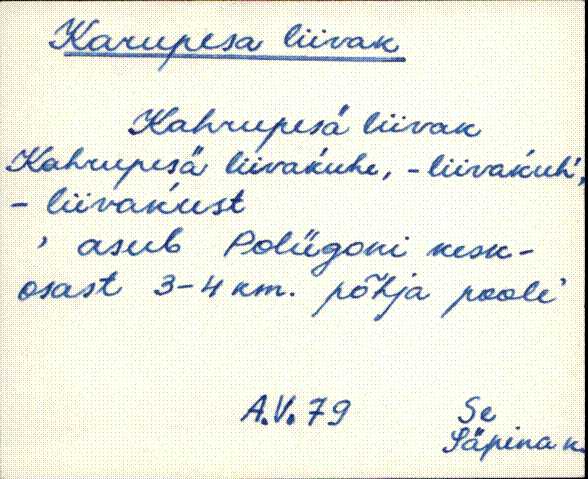 Karupesa liivak
Kahrupesä liivak
Kahrupesä liivakuhe, -liivakuh',
- liivakust
' asub Poliigoni kesk-
osast 3-4 km. põhja poole'
A.V. 79
Se
Säpina k.